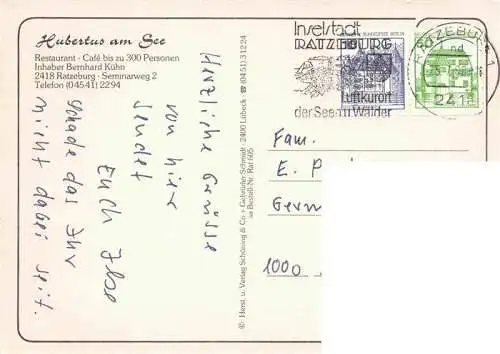 Hubertus am See
Restaurant · Café bis zu 300 Personen
Inhaber Bernhard Kühn
2418 Ratzeburg · Seminarweg 2
Telefon (04541) 2294
Herzliche Grüsse
von hier
sendet
Euch Ilse
schade das Ihr
nicht dabei seit.
Herst. u. Verlag Schöning & Co. + Gebrüder Schmidt · 2400 Lübeck · ☎ (0451) 31224
sa Bestell-Nr. Rat 605
Inselstadt
RATZEBURG
Luftkurort
der Seen u. Wälder
RATZEBURG 1
241
Fam.
E. P
Germ
1000